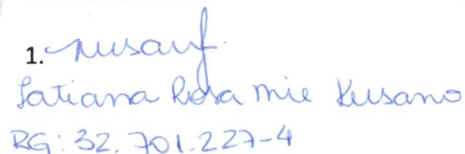 1. Kusanof.
Tatiana Rosa Mie Kusano
RG: 32.701.227-4